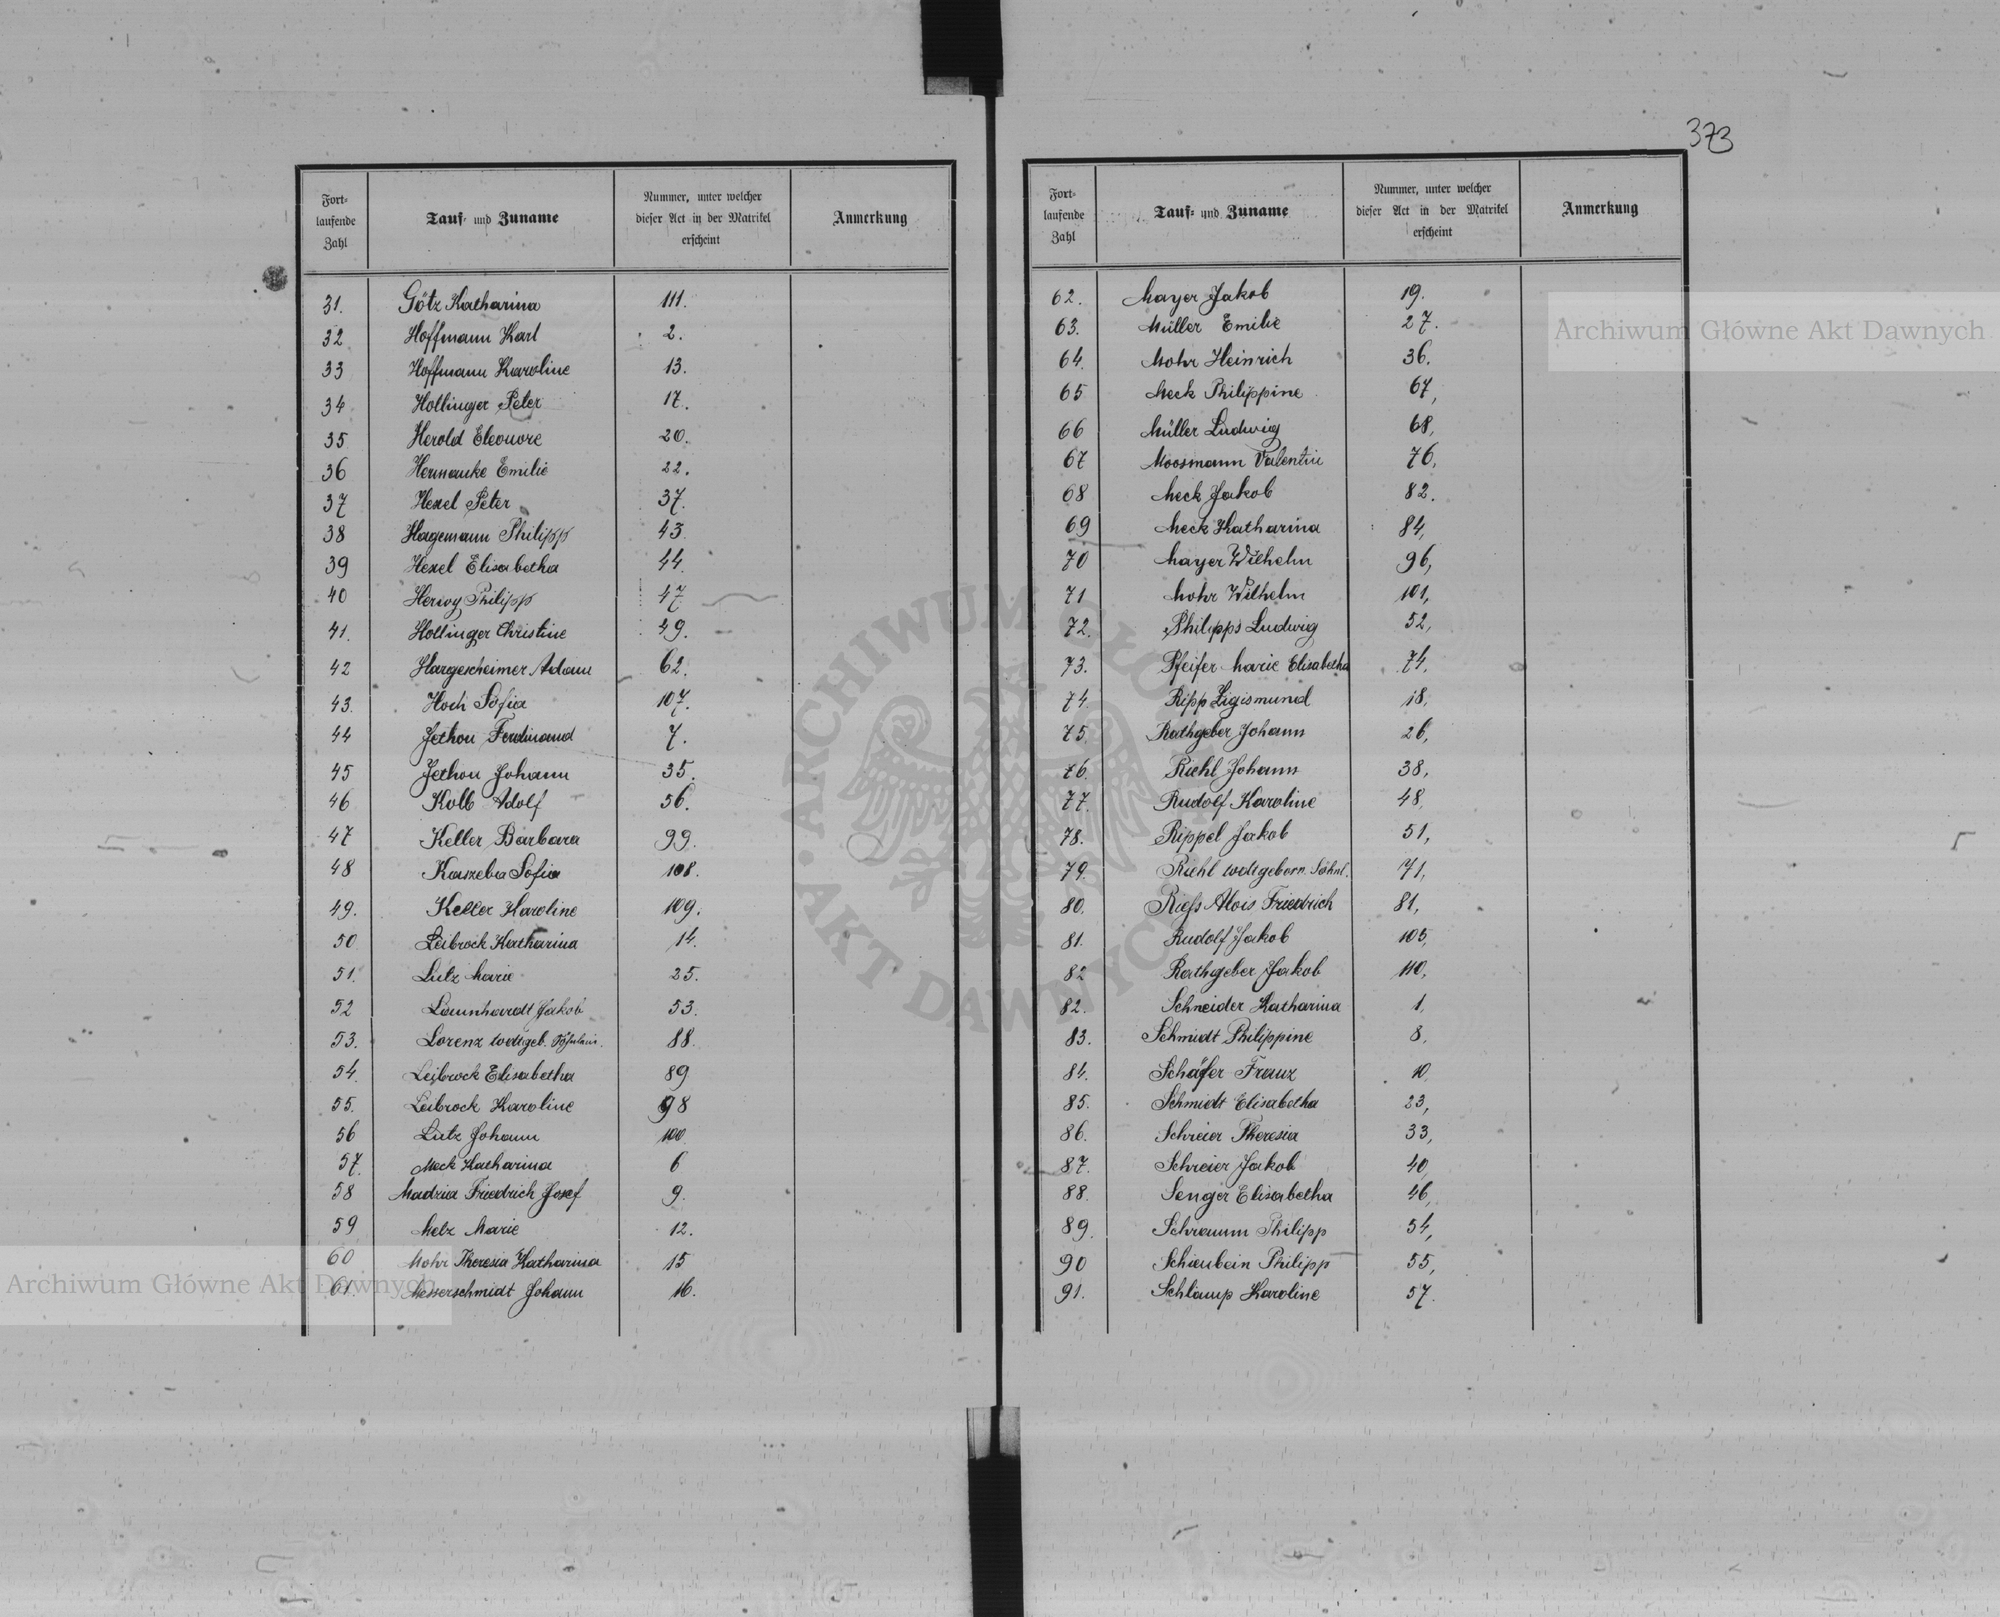 373
Fort-
laufende
Zahl
Tauf- und Zuname
Nummer, unter welcher
dieser Act in der Matrikel
erscheint
Anmerkung
31. Götz Katharina 111.
32 Hoffmann Karl 2.
33 Hoffmann Karoline 13.
34 Hollinger Peter 17.
35 Herold Eleonore 20.
36 Hermanke Emilie 22.
37 Hexel Peter 37.
38 Hagemann Philipp 43
39 Hexel Elisabetha 44.
40 Herwy Philipp 47
41. Hollinger Christine 49.
42 Hargesheimer Adam 62.
43. Hoch Sofia 107.
44 Jethon Ferdinand 7.
45 Jethon Johann 35.
46 Kolb Adolf 56.
47 Keller Barbara 99.
48 Kaszeba Sofia 108.
49. Keller Karoline 109.
50 Leibrock Katharina 14.
51. Lutz Marie 25.
52 Launhardt Jakob 53.
53. Lorenz todtgeb. 88.
54. Leibrock Elisabetha 89
55. Leibrock Karoline 98
56 Lutz Johann 100.
57. Meck Katharina 6
58 Madria Friedrich Josef 9.
59 Metz Marie 12.
60 Mohr Theresia Katharina 15
61. Messerschmidt Johann 16.
Fort-
laufende
Zahl
Tauf- und Zuname
Nummer, unter welcher
dieser Act in der Matrikel
erscheint
Anmerkung
62. Mayer Jakob 19.
63. Müller Emilie 27.
64. Mohr Heinrich 36.
65 Meck Philippine 67,
66 Müller Ludwig 68,
67 Moosmann Valentin 76,
68 Meck Jakob 82.
69 Meck Katharina 84,
70 Mayer Wilhelm 96,
71 Mohr Wilhelm 101,
72. Philipps Ludwig 52,
73. Pfeifer Marie Elisabetha 74,
74. Ripp Sigismund 18,
75. Rathgeber Johann 26,
76. Riehl Johann 38,
77. Rudolf Karoline 48,
78. Rippel Jakob 51,
79. Riehl todtgeborn. Söhnl. 71,
80. Riefs Alois Friedrich 81,
81. Rudolf Jakob 105,
82 Rathgeber Jakob 110,
82. Schneider Katharina 1,
83. Schmidt Philippine 8,
84. Schäfer Franz 10,
85. Schmidt Elisabetha 23,
86. Schreier Theresia 33,
87. Schreier Jakob 40,
88. Senger Elisabetha 46,
89. Schramm Philipp 54,
90 Schienbein Philipp 55,
91. Schlamp Karoline 57.
Archiwum Główne Akt Dawnych
Archiwum Główne Akt Dawnych
ARCHIWUM GŁÓWNE AKT DAWNYCH